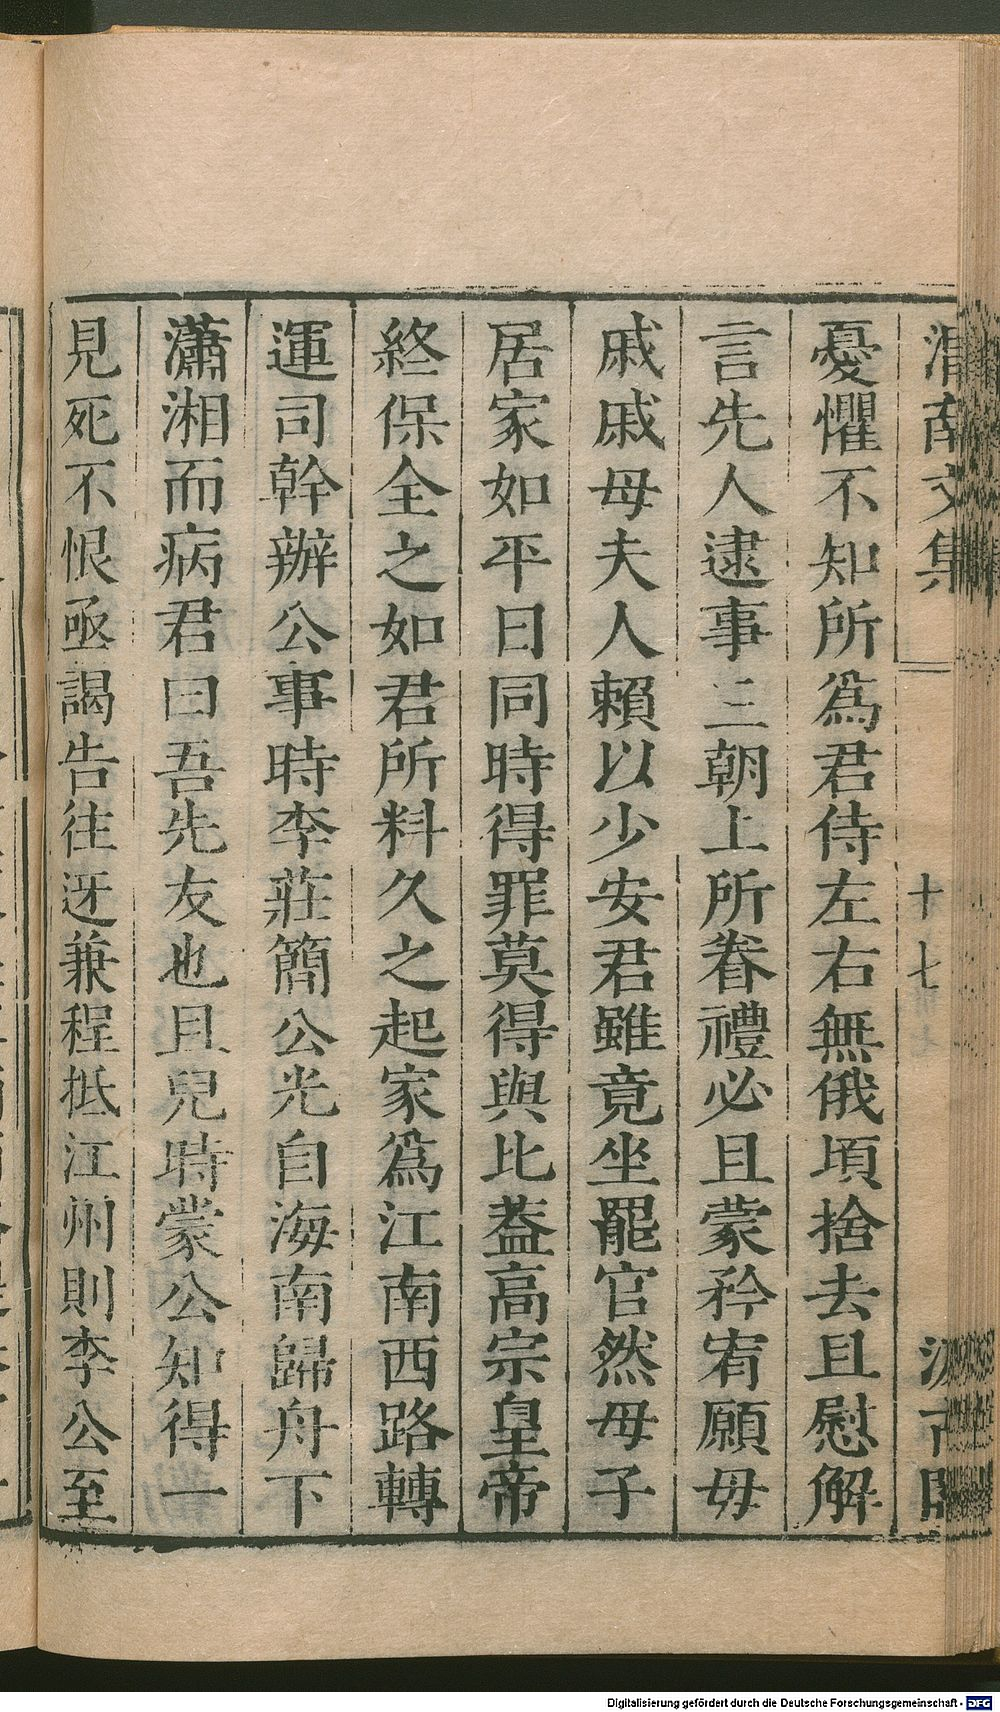 渭南文集 十七 汲古閣
憂懼不知所爲君侍左右無俄頃捨去且慰解
言先人逮事三朝上所眷禮必且蒙矜宥願毋
戚戚母夫人賴以少安君雖竟坐罷官然母子
居家如平日同時得罪莫得與比葢高宗皇帝
終保全之如君所料久之起家爲江南西路轉
運司幹辦公事時李莊簡公光自海南歸舟下
瀟湘而病君曰吾先友也且兒時蒙公知得一
見死不恨亟謁告往迓兼程抵江州則李公至
Digitalisierung gefördert durch die Deutsche Forschungsgemeinschaft - DFG